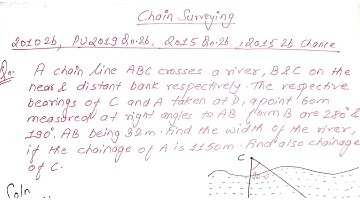 Chain Surveying
2010 2b, PU2019 Qn.2b, 2015 Qn.2b, 2015 2b Chance
Qn. A chain line ABC crosses a river, B & C on the
near & distant bank respectively. The respective
bearings of C and A taken at D, a point 60m
measured at right angles to AB from B are 280° &
190°. AB being 32m. Find the width of the river,
if the chainage of A is 1150m. Find also chainage
of C.
C
Soln